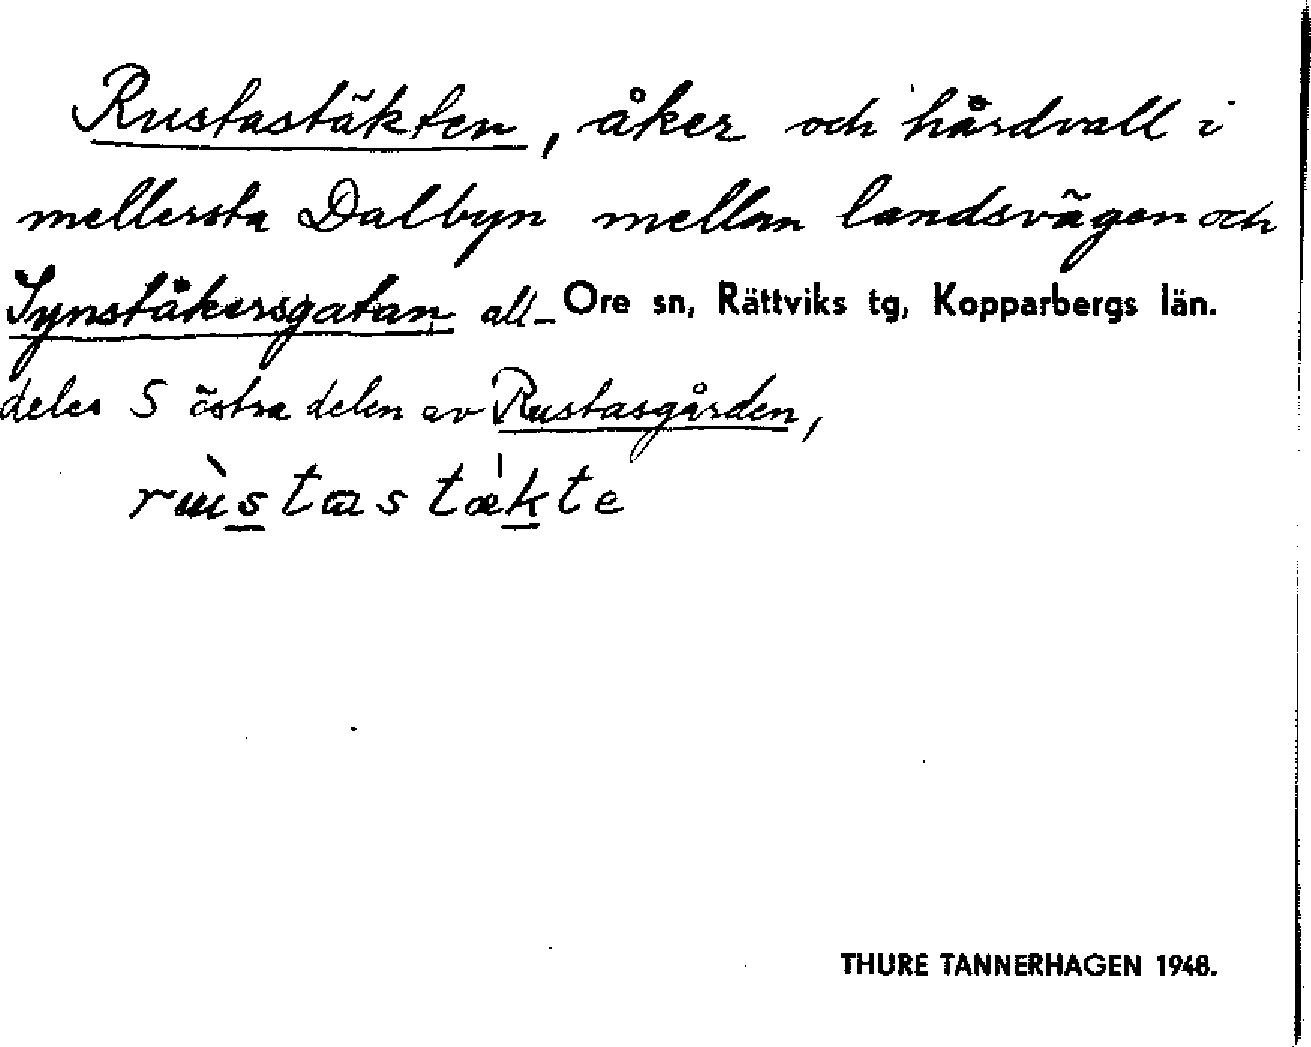 Rustastäkten, åker och hårdvall i
mellersta Dalbyn mellan landsvägen och
Synståkersgatan all- Ore sn, Rättviks tg, Kopparbergs län.
deles S östra delen av Rustasgården,
rɯ̀stɑs tæ̍kte
THURE TANNERHAGEN 1948.